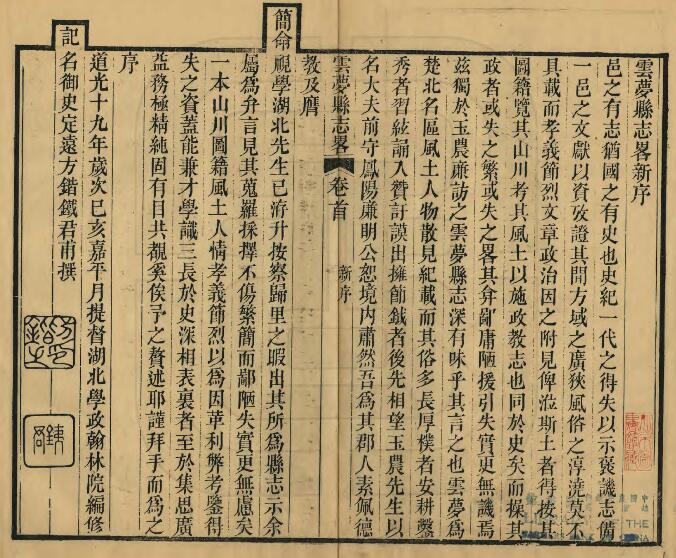 雲夢縣志畧新序
邑之有志猶國之有史也史紀一代之得失以示褒譏志備
一邑之文獻以資攷證其間方域之廣狹風俗之淳澆莫不
具載而孝義節烈文章政治因之附見俾蒞斯土者得按其
圖籍覽其山川考其風土以施政教志也同於史矣而操其
政者或失之繁或失之畧其弇鄙庸陋援引失實更無譏焉
茲獨於玉農亷訪之雲夢縣志深有味乎其言之也雲夢爲
楚北名區風土人物散見紀載而其俗多長厚樸者安耕鑿
秀者習絃誦入贊訏謨出擁節鉞者後先相望玉農先生以
名大夫前守鳳陽亷明公恕境內肅然吾爲其郡人素佩德
雲夢縣志畧
卷首
新序
教及膺
簡命視學湖北先生已洊升按察歸里之暇出其所爲縣志示余
屬爲弁言見其蒐羅採擇不傷繁簡而鄙陋失實更無慮矣
一本山川圖籍風土人情孝義節烈以爲因革利弊考鑒得
失之資蓋能兼才學識三長於史深相表裏者至於集思廣
益務極精純固有目共覩奚俟予之贅述耶謹拜手而爲之
序
道光十九年歲次己亥嘉平月提督湖北學政翰林院編修
記名御史定遠方鍇鐵君甫撰
THE